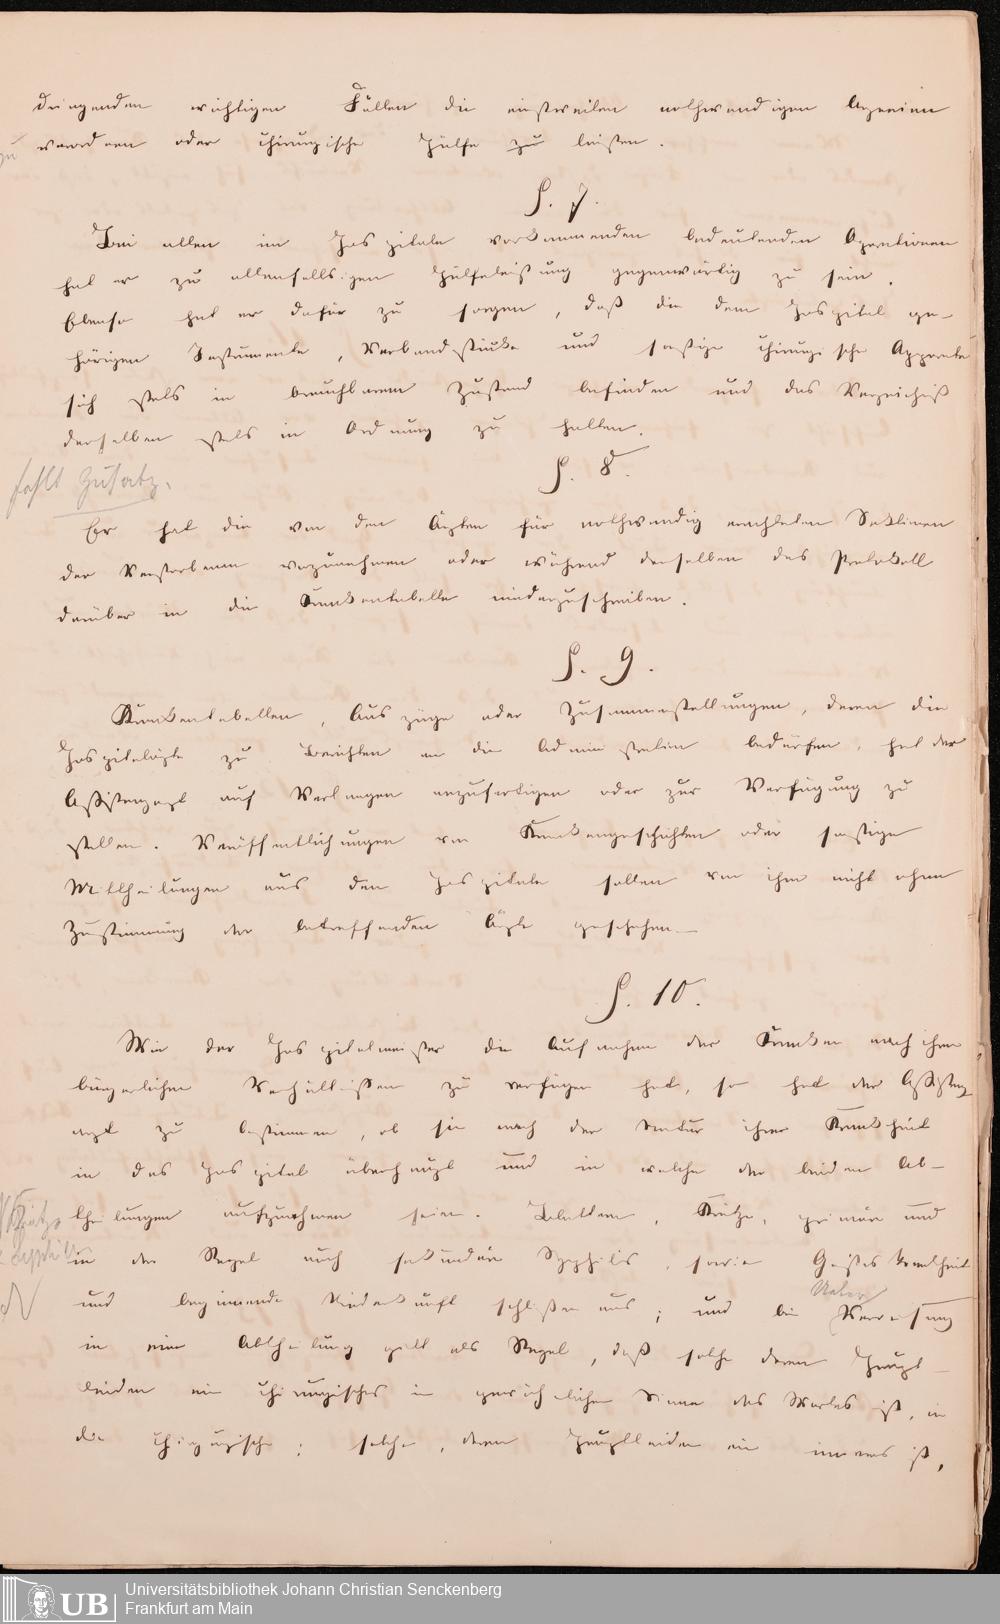 dringenden wichtigen Fällen die einstweilen nothwendigen Arzneien
zu
verordnen oder chirurgische Hülfe zu leisten.
§. 7.
Bei allen im Hospitale vorkommenden bedeutenden Operationen
hat er zu allenfallsigen Hülfeleistung gegenwärtig zu sein.
Ebenso hat er dafür zu sorgen, daß die dem Hospital ge-
hörigen Instrumente, Verbandstücke und sonstige chirurgische Apparate
sich stets in brauchbarem Zustand befinden und das Verzeichniß
derselben stets in Ordnung zu halten.
§. 8.
fehlt Zusatz.
Er hat die von den Ärzten für nothwendig erachteten Sektionen
der Verstorbenen vorzunehmen oder während derselben das Protokoll
darüber in die Krankentabelle niederzuschreiben.
§. 9.
Krankentabellen, Auszüge oder Zusammenstellungen, deren die
Hospitalärzte zu Berichten an die Administration bedürfen, hat der
Assistenzarzt auf Verlangen anzufertigen oder zur Verfügung zu
stellen. Veröffentlichungen von Krankengeschichten oder sonstige
Mittheilungen aus dem Hospitale sollen von ihm nicht ohne
Zustimmung der betreffenden Ärzte geschehen.
§. 10.
Wie der Hospitalmeister die Aufnahme der Kranken nach ihren
bürgerlichen Verhältnissen zu verfügen hat, so hat der Assistenz
arzt zu bestimmen, ob sie nach der Natur ihrer Krankheit
in das Hospital überhaupt und in welche der beiden Ab-
theilungen aufzunehmen seien. Blattern, Krätze, primäre und
Krätze
in der Regel auch sekundäre Syphilis, sowie Geisteskrankheit
Ueber
und beginnende Niederkunft schließen aus; und bei Verweisung
in eine Abtheilung gilt als Regel, daß solche deren Haupt-
leiden ein chirurgisches im gewöhnlichen Sinne des Wortes ist, in
die chirurgische; solche, deren Hauptleiden ein inneres ist,
Universitätsbibliothek Johann Christian Senckenberg
UB
Frankfurt am Main